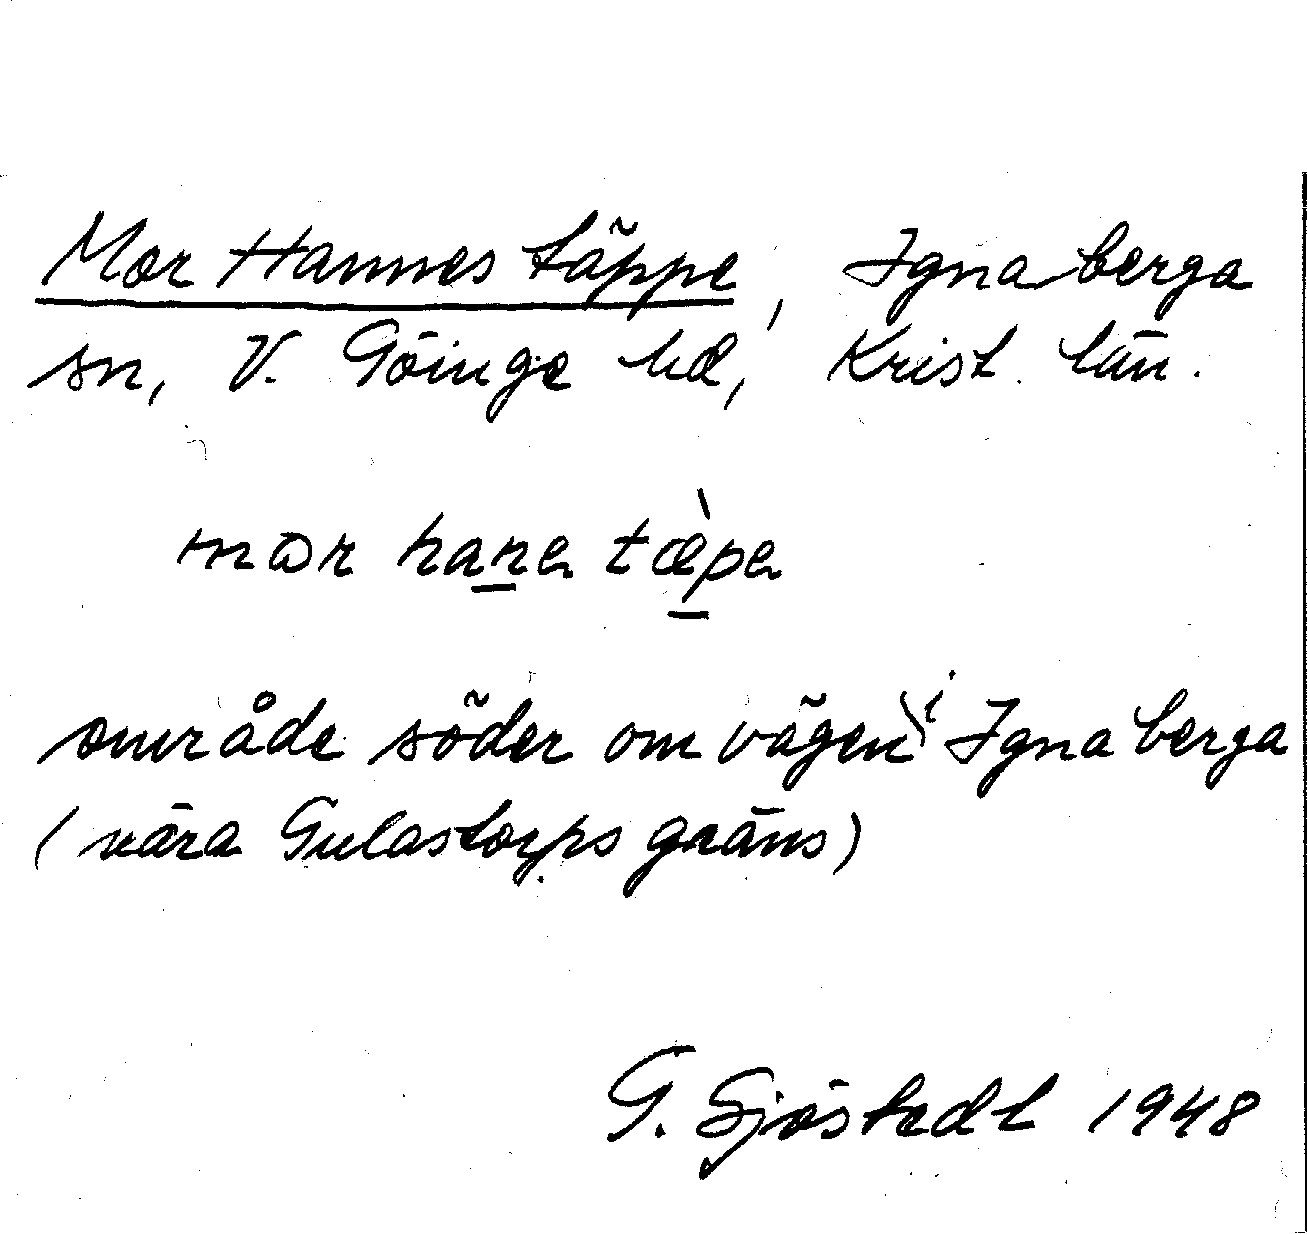 Mor Hannes täppe, Ignaberga
sn, V. Göinge hd, Krist. län.
mor hanes tæ̀pe
område söder om vägen i Ignaberga
(nära Gulastorps gräns)
G. Sjöstedt 1948